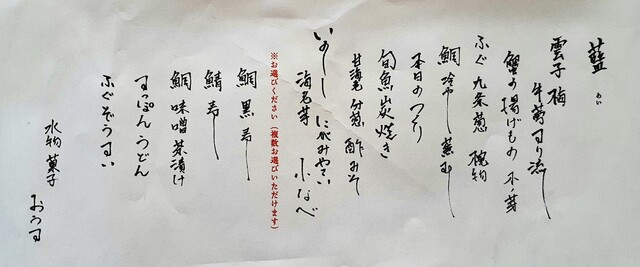 藍 らい
雲子 梅
牛蒡 すり流し
蟹の揚げもの 木ノ芽
ふぐ 九条葱 椀物
鯛 冷やし 蒸し
本日のつくり
旬魚炭焼き
甘海老 分葱 酢みそ
いのしし
海老芋 小なべ
※お選びください(複数お選びいただけます)
鯛 黒寿し
鯖寿し
鯛 味噌茶漬け
すっぽんうどん
ふぐぞうすい
水物 菓子 おうす